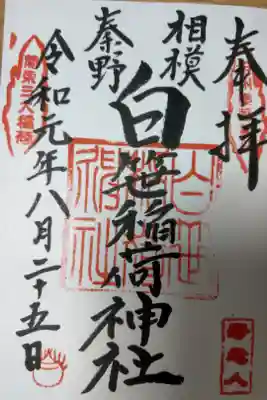 奉拝
相模
秦野
白笹稲荷神社
令和元年八月二十五日
関東三大稲荷